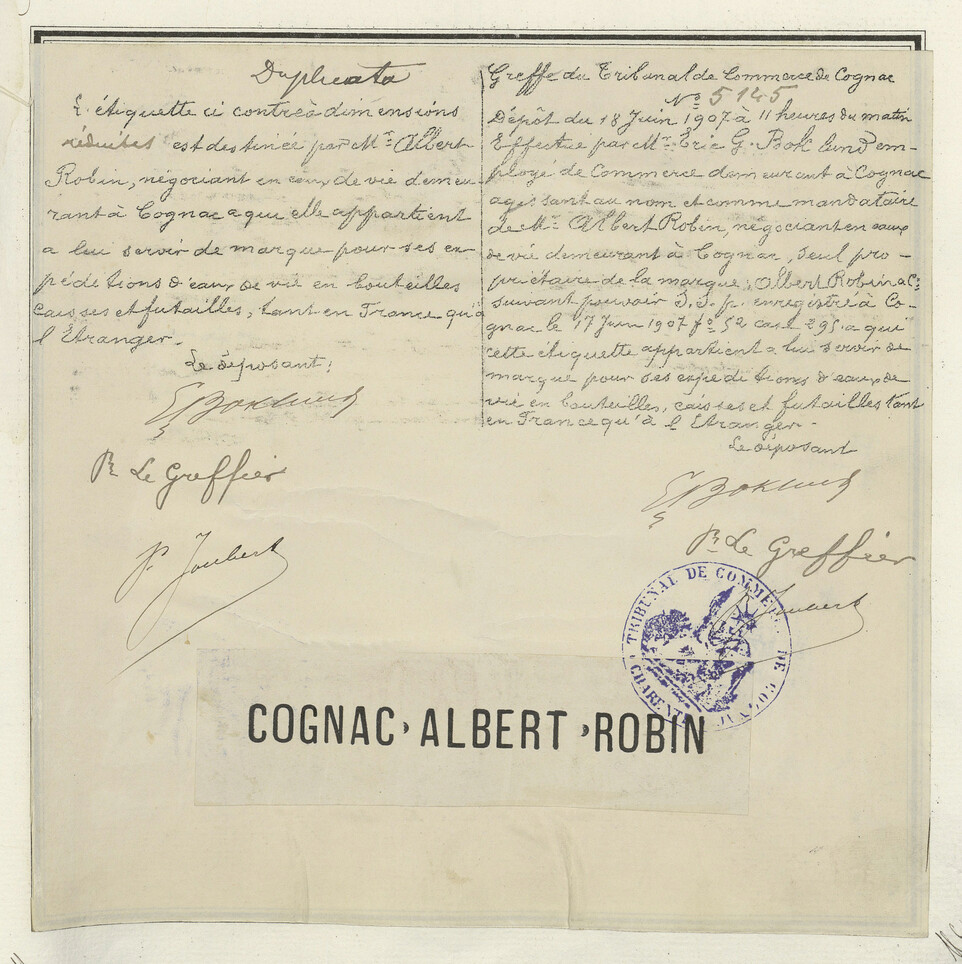 Duplicata
L'étiquette ci contre à dimensions
réduites est destinée par Mr. Albert
Robin, négociant en eaux de vie demeu
rant à Cognac a qui elle appartient
a lui servir de marque pour ses ex
péditions d'eaux de vie en bouteilles
caisses et futailles, tant en France qu'à
l'Etranger.
Le déposant:
E Boklund
Pr Le Greffier
P. Joubert
Greffe du Tribunal de Commerce de Cognac
No 5145
Dépôt du 18 Juin 1907 à 11 heures du matin
Effectué par Mr. Eric G. Boklund em-
ployé de Commerce demeurant à Cognac
agissant au nom et comme mandataire
de Mr. Albert Robin, négociant en eaux
de vie demeurant à Cognac, seul pro-
priétaire de la marque, Albert Robin & Co
suivant pouvoir S.S.p. enregistré à Co-
gnac le 17 Juin 1907 fo 52 case 295 a qui
cette étiquette appartient a lui servir de
marque pour ses expéditions d'eaux de
vie en bouteilles, caisses et futailles tant
en France qu'à l'Etranger.
Le déposant
E Boklund
Pr Le Greffier
Joubert
TRIBUNAL DE COMMERCE DE COGNAC
CHARENTE
COGNAC, ALBERT, ROBIN